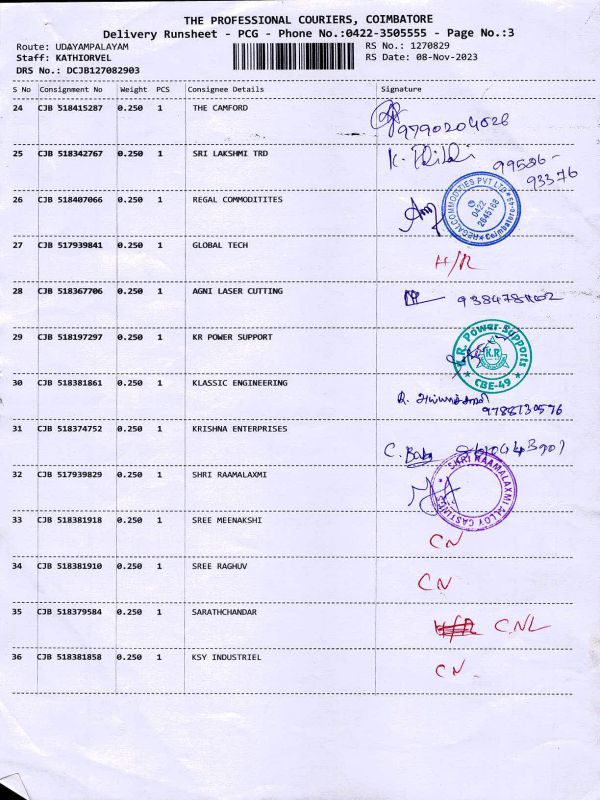 THE PROFESSIONAL COURIERS, COIMBATORE
Delivery Runsheet - PCG - Phone No.:0422-3505555 - Page No.:3
Route: UDAYAMPALAYAM
Staff: KATHIORVEL
DRS No.: DCJB127082903
RS No.: 1270829
RS Date: 08-Nov-2023
S No Consignment No Weight PCS Consignee Details Signature
24 CJB 518415287 0.250 1 THE CAMFORD
9790204028
25 CJB 518342767 0.250 1 SRI LAKSHMI TRD
99526-
93376
26 CJB 518407066 0.250 1 REGAL COMMODITITES
REGAL COMMODITIES PVT LTD
0422
2645168
Coimbatore-49
27 CJB 517939841 0.250 1 GLOBAL TECH H/R
28 CJB 518367706 0.250 1 AGNI LASER CUTTING
29 CJB 518197297 0.250 1 KR POWER SUPPORT
K.R. Power Supports
K.R
CBE-49
30 CJB 518381861 0.250 1 KLASSIC ENGINEERING
9788730576
31 CJB 518374752 0.250 1 KRISHNA ENTERPRISES
32 CJB 517939829 0.250 1 SHRI RAAMALAXMI
SHRI RAAMALAXMI ALLOY CASTINGS
33 CJB 518381918 0.250 1 SREE MEENAKSHI CN
34 CJB 518381910 0.250 1 SREE RAGHUV CN
35 CJB 518379584 0.250 1 SARATHCHANDAR CNL
36 CJB 518381858 0.250 1 KSY INDUSTRIEL CN